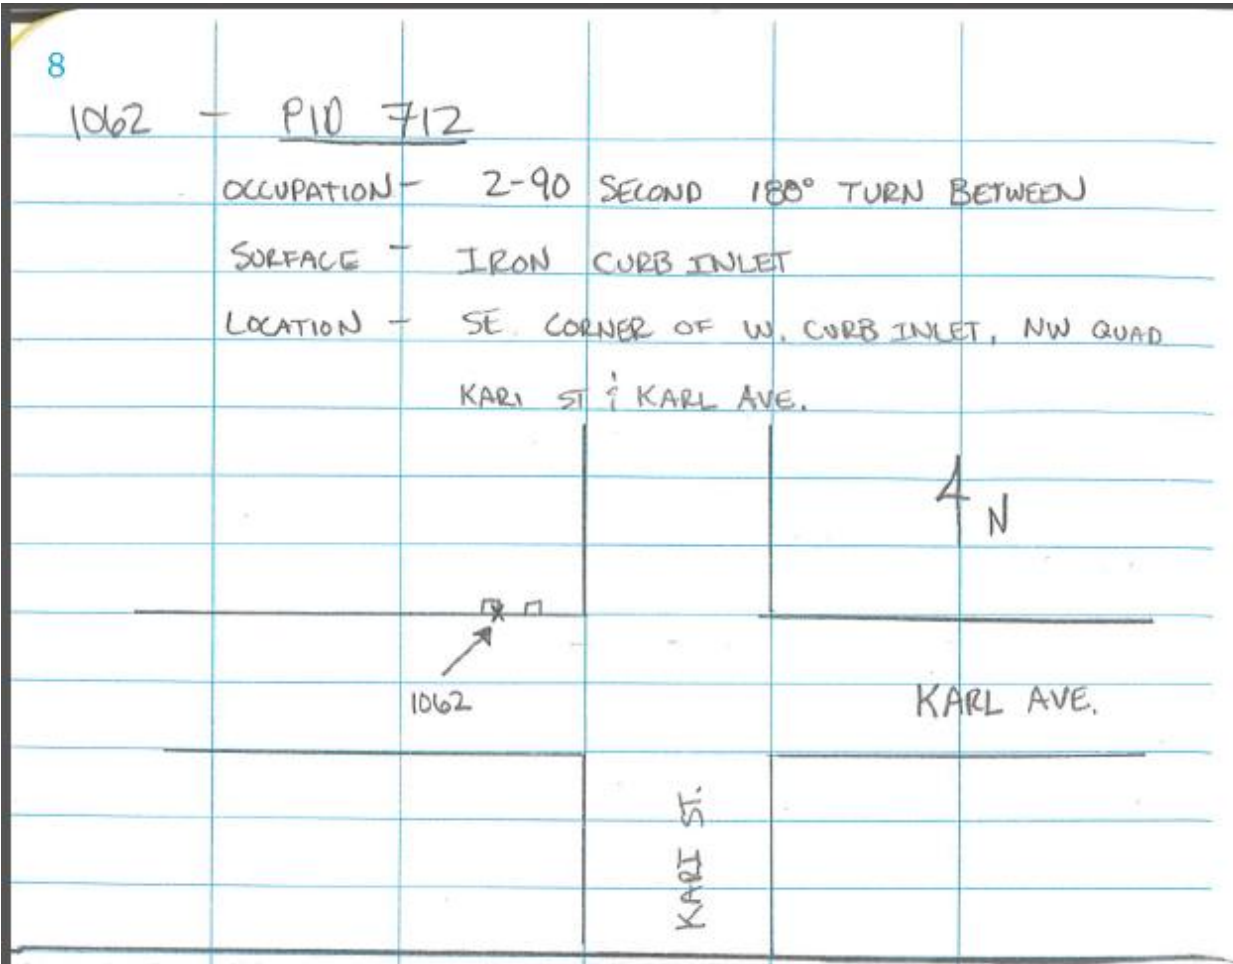 8
1062 - PID 712
OCCUPATION - 2-90 SECOND 180° TURN BETWEEN
SURFACE - IRON CURB INLET
LOCATION - SE. CORNER OF W. CURB INLET, NW QUAD
KARI ST & KARL AVE.
N
1062
KARL AVE.
KARI ST.